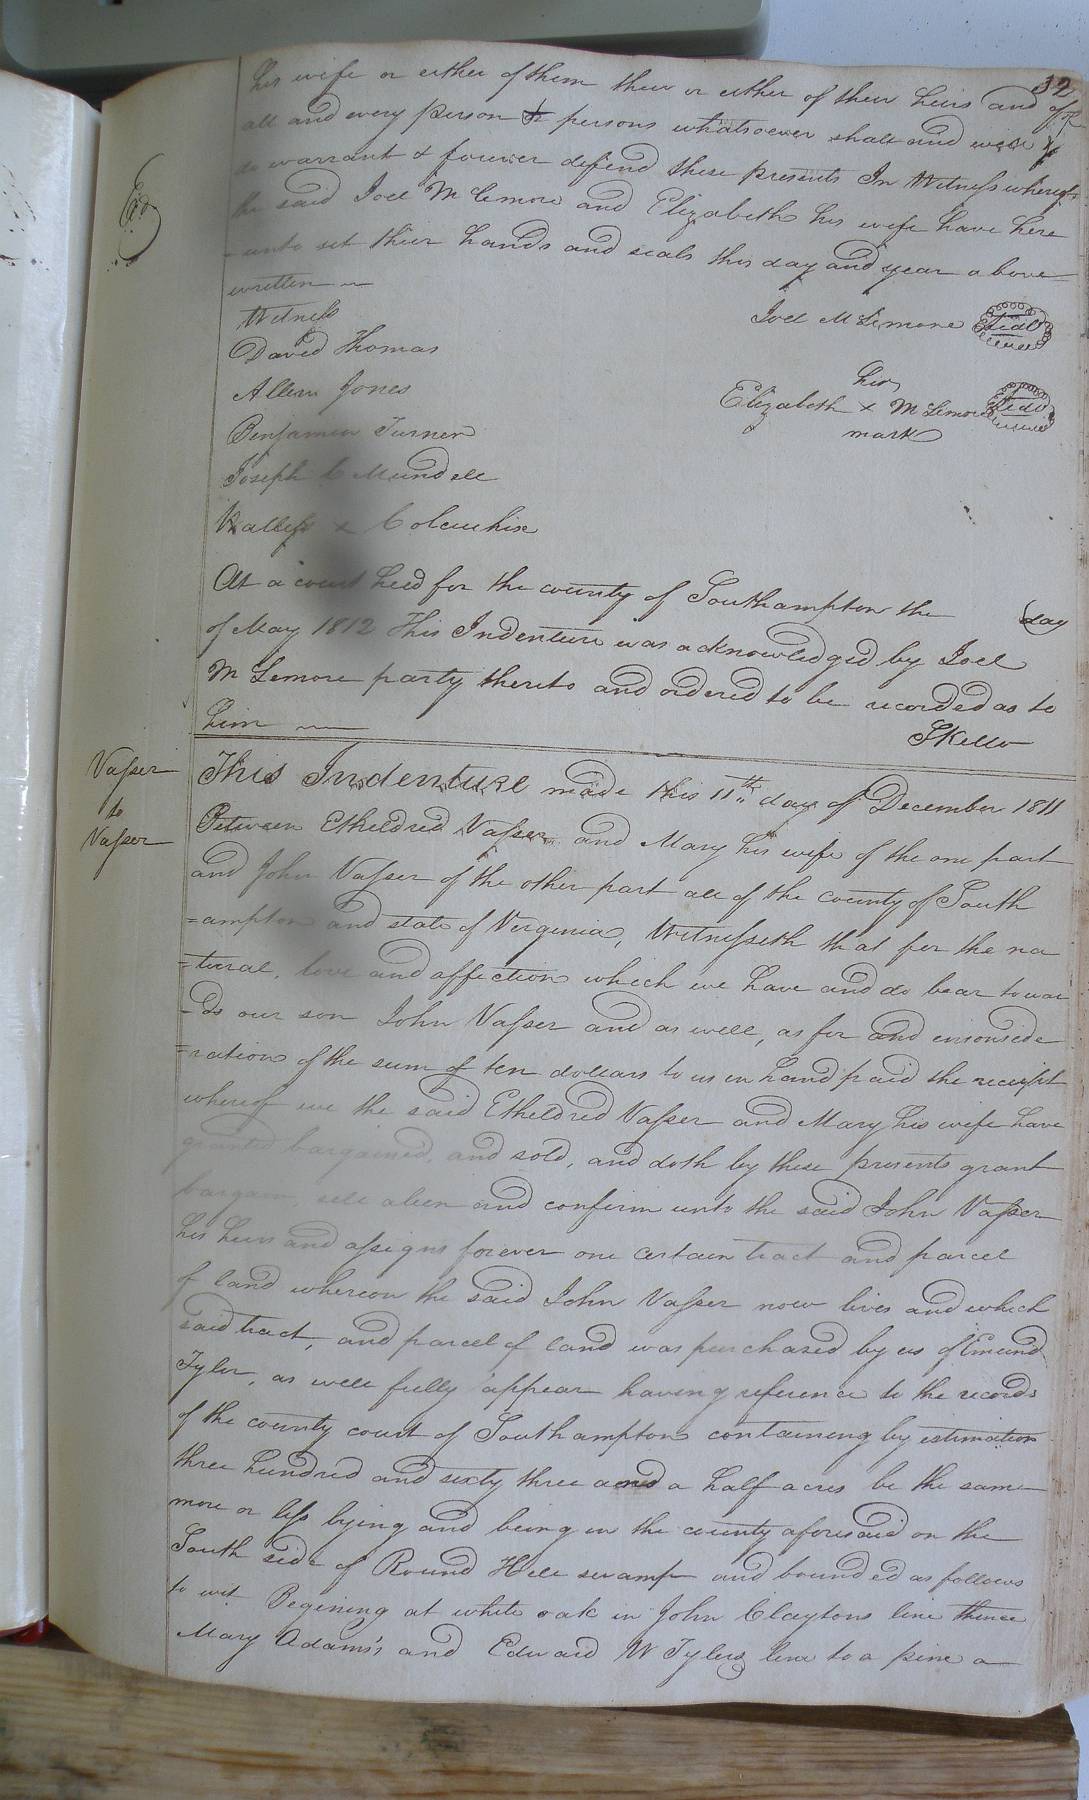 32
his wife or either of them their or either of their heirs and off
all and every person or persons whatsoever shall and will
to warrant & forever defend these presents In Witness whereof
the said Joel McLemore and Elizabeth his wife have here
-unto set their hands and seals this day and year above
written
Witness
Joel McLemore Seal
David Thomas
Allen Jones
her
Elizabeth x McLemore Seal
mark
Benjamin Turner
Joseph C Mundell
x
At a court held for the county of Southampton the day
of May 1812 This Indenture was acknowledged by Joel
McLemore party thereto and ordered to be recorded as to
him
SKello
Vasser
to
Vasser
This Indenture made this 11th day of December 1811
Between Etheldred Vasser and Mary his wife of the one part
and John Vasser of the other part all of the county of South
=ampton and state of Verginia, Witnesseth that for the na
=tural, love and affection which we have and do bear towar
-ds our son John Vasser and as well, as for and in conside
=ration of the sum of ten dollars to us in hand paid the receipt
whereof we the said Etheldred Vasser and Mary his wife have
granted bargained, and sold, and doth by these presents grant
bargain, sell alien and confirm unto the said John Vasser
his heirs and assigns forever one certain tract and parcel
of land whereon the said John Vasser now lives and which
said tract, and parcel of land was purchased by us of Emund
Tyler, as well fully appear having reference to the records
of the county court of Southampton containing by estimation
three hundred and sixty three and a half acres be the same
more or less lying and being in the county aforesaid on the
South side of Round Hill swamp and bounded as follows
to wit Begining at white oak in John Claytons line thence
Mary Adams's and Edward W Tylers line to a pine a